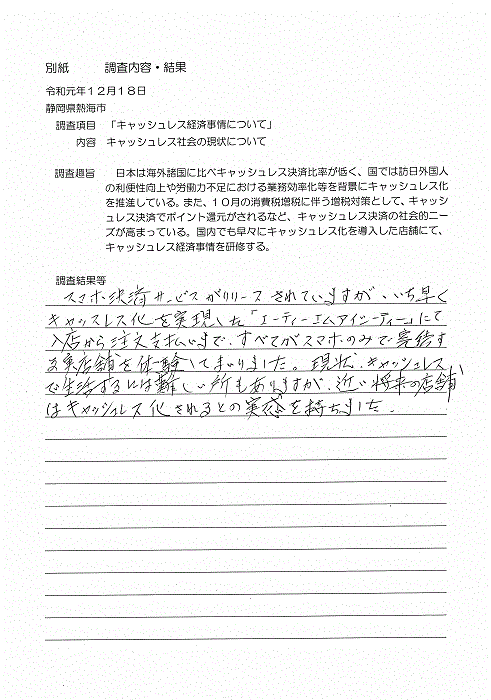 別紙　　　調査内容・結果
令和元年１２月１８日
静岡県熱海市
調査項目　「キャッシュレス経済事情について」
内容　キャッシュレス社会の現状について
調査趣旨　日本は海外諸国に比べキャッシュレス決済比率が低く、国では訪日外国人
の利便性向上や労働力不足における業務効率化等を背景にキャッシュレス化
を推進している。また、１０月の消費税増税に伴う増税対策として、キャッシ
ュレス決済でポイント還元がされるなど、キャッシュレス決済の社会的ニー
ズが高まっている。国内でも早々にキャッシュレス化を導入した店舗にて、
キャッシュレス経済事情を研修する。
調査結果等
スマホ決済サービスがリリースされていますが、いち早く
キャッスレス化を実現した「エーティーエムアイシーティー」にて
入店から注文支払いまで、すべてがスマホのみで完結す
る実店舗を体験してまいりました。現状、キャッシュレス
で生活するには難しい所もありますが、近い将来の店舗
はキャッシュレス化されるとの実感を持ちました。